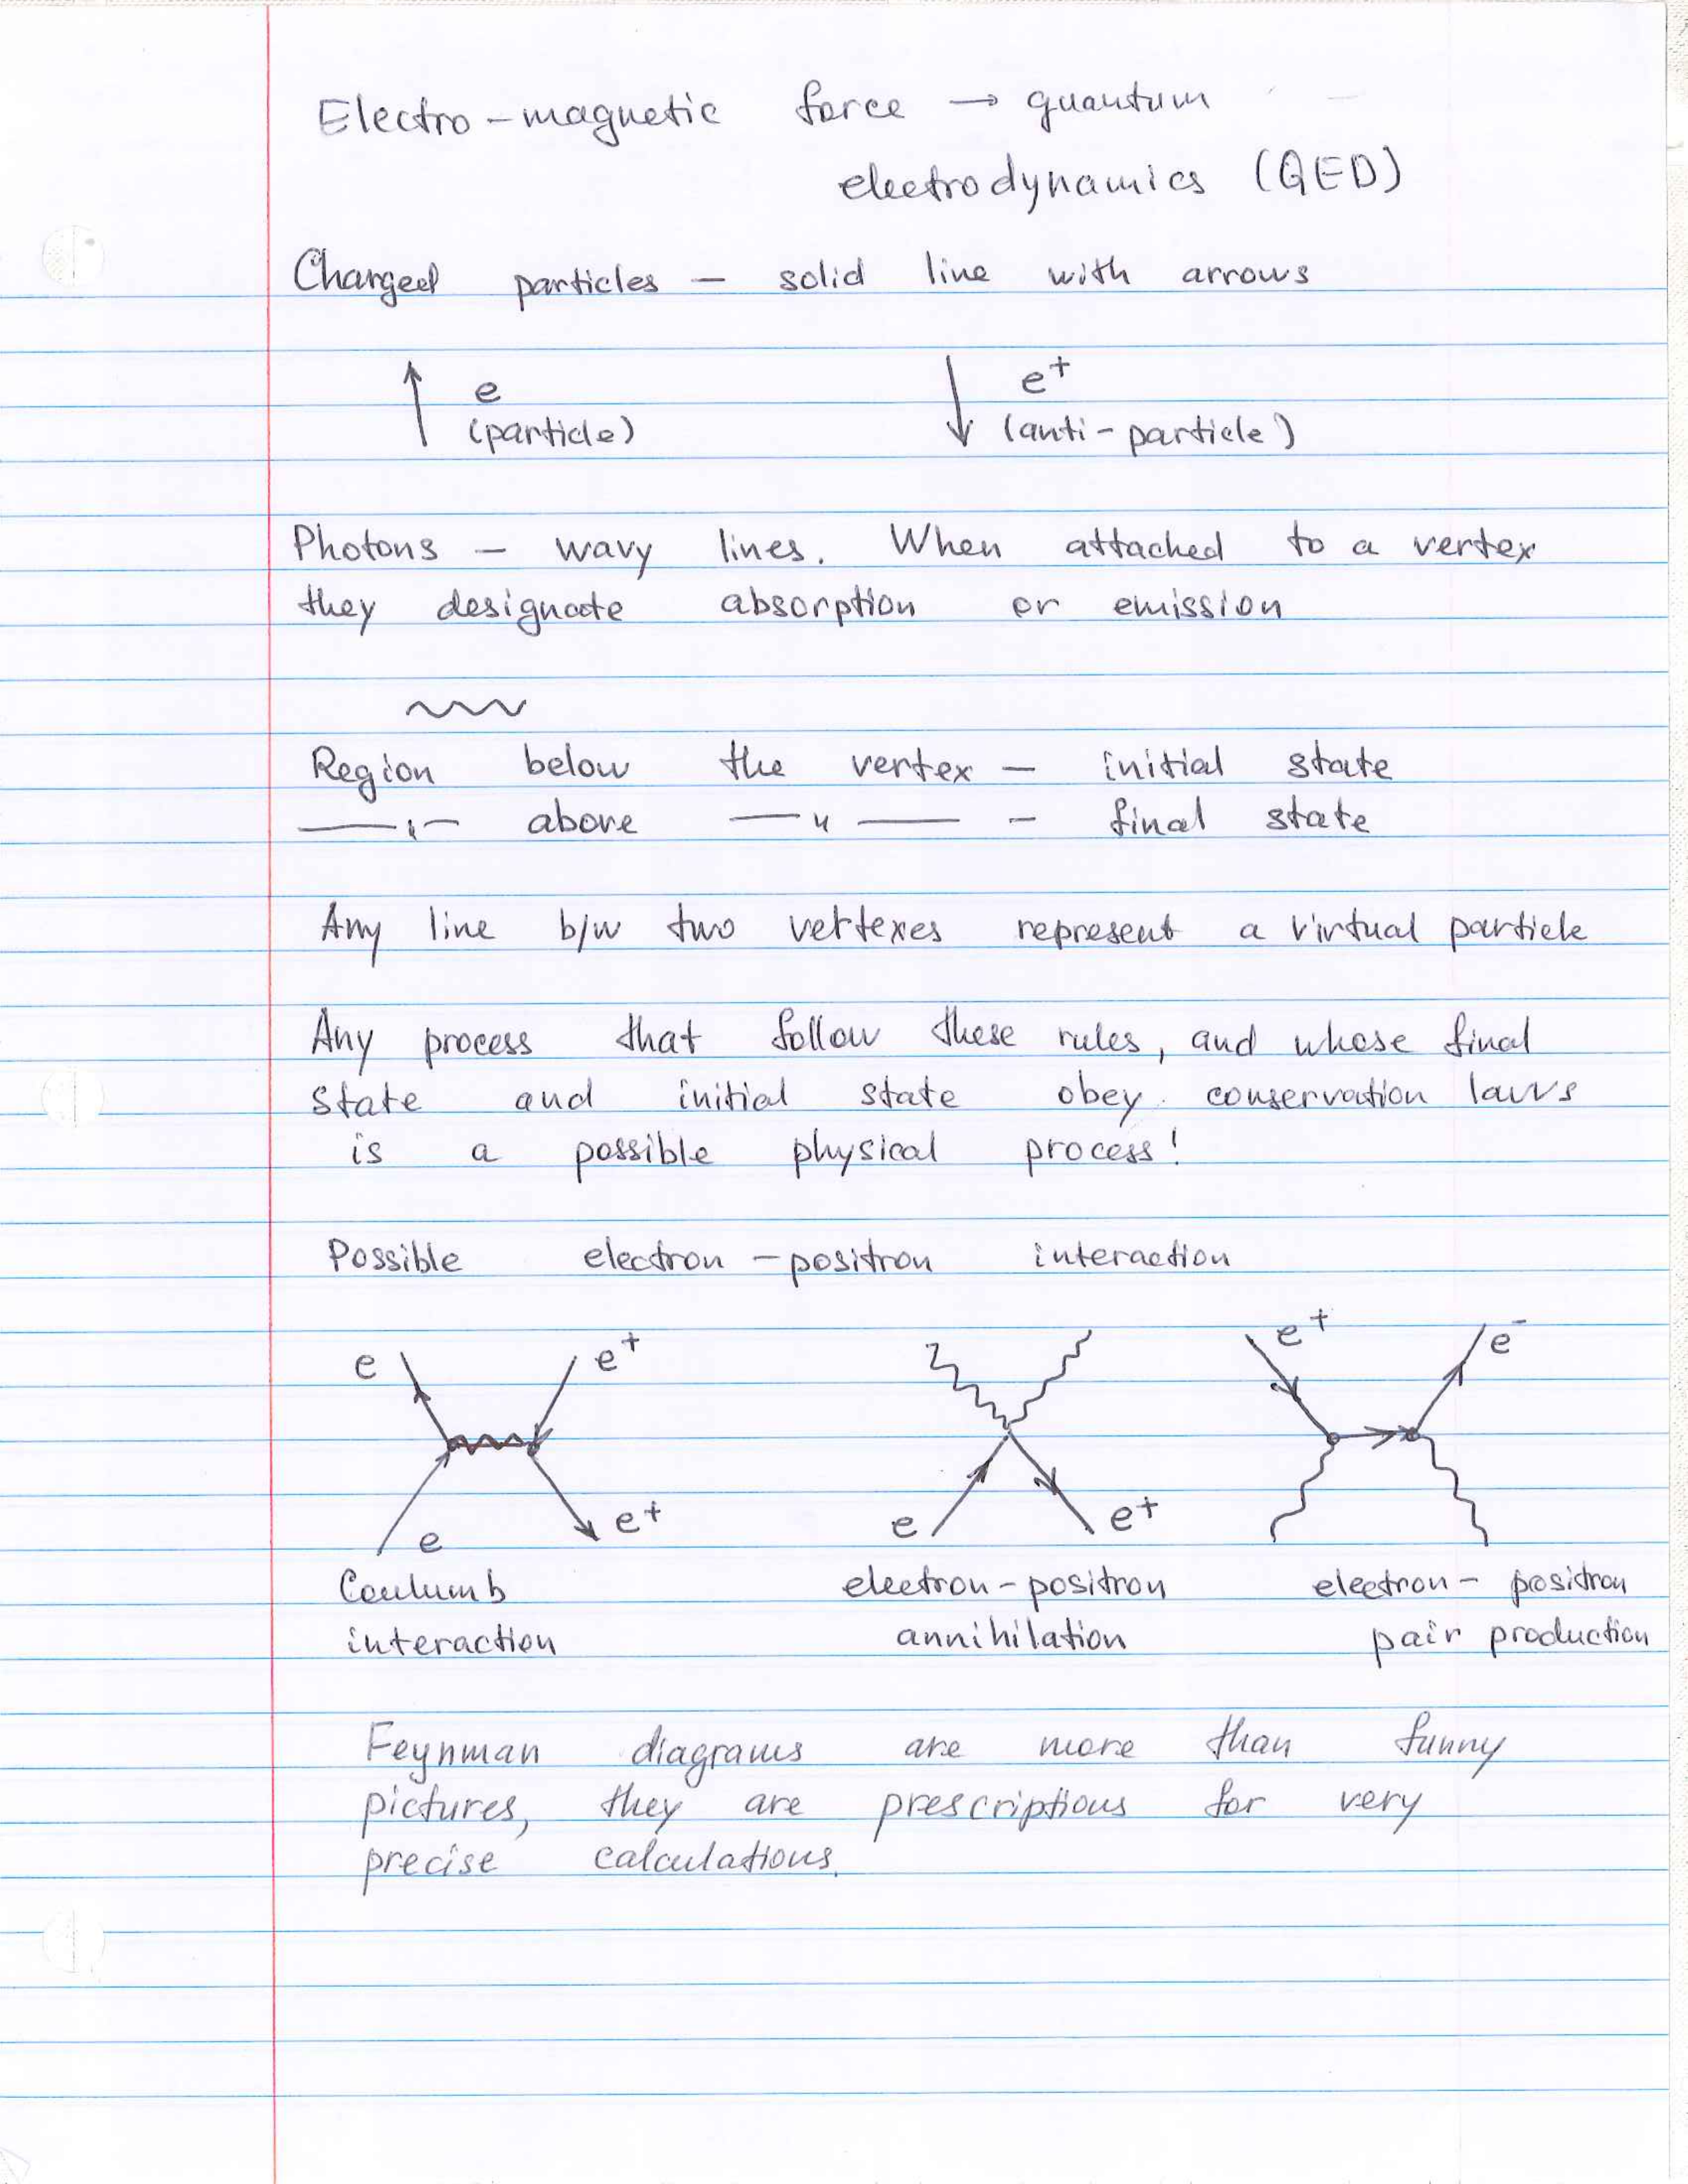 Electro-magnetic force → quantum
electrodynamics (QED)
Charged particles — solid line with arrows
e e+
(particle) (anti-particle)
Photons — wavy lines. When attached to a vertex
they designate absorption or emission
Region below the vertex — initial state
—ı— above —ıı— — final state
Any line b/w two vertexes represent a virtual particle
Any process that follow these rules, and whose final
state and initial state obey conservation laws
is a possible physical process!
Possible electron-positron interaction
e e+ e+ e-
e e+ e e+
Coulumb electron-positron electron- positron
interaction annihilation pair production
Feynman diagrams are more than funny
pictures, they are prescriptions for very
precise calculations.